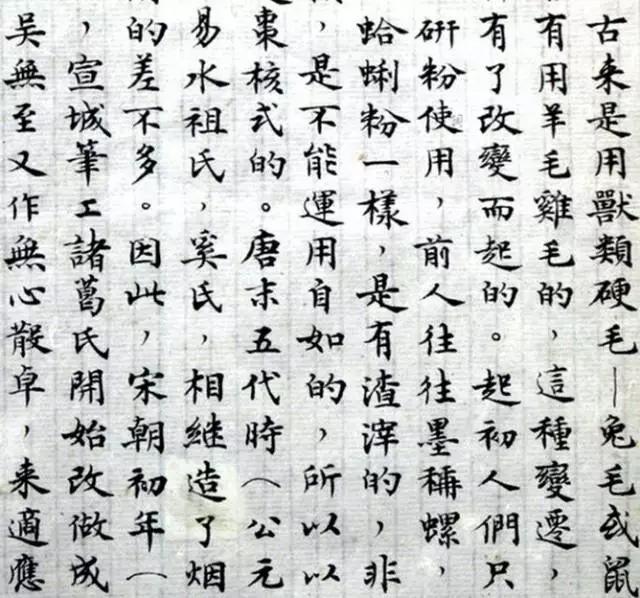 古来是用獸類硬毛—兔毛或鼠
有用羊毛雞毛的，這種變遷，
有了改變而起的。起初人們只
硏粉使用，前人往往墨稱螺，
蛤蜊粉一樣，是有渣滓的，非
，是不能運用自如的，所以以
棗核式的。唐末五代時（公元
易水祖氏，奚氏，相继造了烟
的差不多。因此，宋朝初年（
，宣城筆工諸葛氏開始改做成
吳無至又作無心散卓，来適應